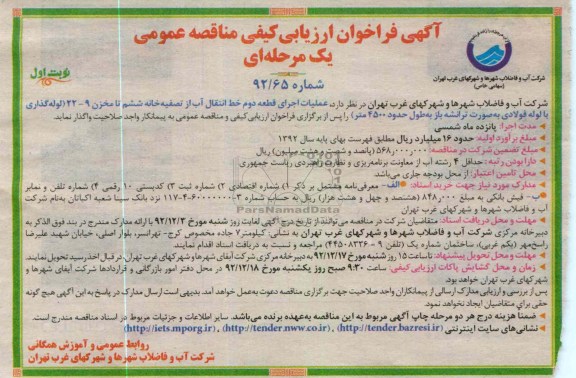 آگهی فراخوان ارزیابی کیفی مناقصه عمومی
یک مرحله‌ای
شماره ۹۲/۶۵
نوبت اول
شرکت آب و فاضلاب شهرها و شهرکهای غرب تهران
(سهامی خاص)
شرکت آب و فاضلاب شهرها و شهرکهای غرب تهران در نظر دارد، عملیات اجرای قطعه دوم خط انتقال آب از تصفیه‌خانه ششم تا مخزن ۹-۲۲ (لوله‌گذاری
با لوله فولادی به‌صورت ترانشه باز به‌طول حدود ۴۵۰۰ متر) را پس از برگزاری فراخوان ارزیابی کیفی و مناقصه عمومی به پیمانکار واجد صلاحیت واگذار نماید.
مدت اجرا: پانزده ماه شمسی
مبلغ برآورد اولیه: حدود ۱۶ میلیارد ریال مطابق فهرست بهای پایه سال ۱۳۹۲
مبلغ تضمین شرکت در مناقصه: ۵۶۸٫۰۰۰٫۰۰۰ (پانصد و شصت و هشت میلیون) ریال
دارا بودن رتبه: حداقل ۴ رشته آب از معاونت برنامه‌ریزی و نظارت راهبردی ریاست جمهوری
محل تامین اعتبار: از محل بودجه جاری می‌باشد.
مدارک مورد نیاز جهت خرید اسناد: الف- معرفی‌نامه مشتمل بر ذکر ۱) شماره اقتصادی ۲) شماره ثبت ۳) کدپستی ۱۰ رقمی ۴) شماره تلفن و نمابر
ب- فیش بانکی به مبلغ ۸۴۸٫۰۰۰ (هشتصد و چهل و هشت هزار) ریال به حساب شماره نزد بانک سینا شعبه آکباتان به‌نام شرکت
آب و فاضلاب شهرها و شهرکهای غرب تهران
مهلت و محل دریافت اسناد: متقاضیان شرکت در مناقصه می توانند از تاریخ درج آگهی لغایت روز شنبه مورخ ۹۲/۱۲/۳ با ارائه مدارک مندرج در بند فوق الذکر به
دبیرخانه مرکزی شرکت آب و فاضلاب شهرها و شهرکهای غرب تهران به نشانی: کیلومتر ۷ جاده مخصوص کرج- تهرانسر، بلوار اصلی، خیابان شهید علیرضا
راسخ‌مهر (یکم غربی)، ساختمان شماره یک (تلفن ۹-۴۴۵۰۸۳۳۶) مراجعه و نسبت به دریافت اسناد اقدام نمایند.
مهلت و محل تحویل پیشنهاد: تا ساعت ۱۵ روز شنبه مورخ ۹۲/۱۲/۱۷ به دبیرخانه مرکزی شرکت آبفای شهرها و شهرکهای غرب تهران، در قبال اخذ رسید تحویل نمایند.
زمان و محل گشایش پاکات ارزیابی کیفی: ساعت ۹:۳۰ صبح روز یکشنبه مورخ ۹۲/۱۲/۱۸ در محل دفتر امور بازرگانی و قراردادها شرکت آبفای شهرها و
شهرکهای غرب تهران خواهد بود.
پس از بررسی و ارزیابی مدارک ارسالی از پیمانکاران واجد صلاحیت جهت برگزاری مناقصه دعوت به‌عمل خواهد آمد. بدیهی است ارسال مدارک در پاسخ به این آگهی هیچ گونه
حقی برای متقاضیان ایجاد نخواهد نمود.
ضمنا هزینه درج هر دو مرحله چاپ آگهی مربوط به این مناقصه به‌عهده برنده می‌باشد. سایر اطلاعات و جزئیات مربوط در اسناد مناقصه مندرج است.
نشانی‌های سایت اینترنتی (http://tender.bazresi.ir)، (http://tender.nww.co.ir)، (http://iets.mporg.ir)
روابط عمومی و آموزش همگانی
شرکت آب و فاضلاب شهرها و شهرکهای غرب تهران
ParsNamadData